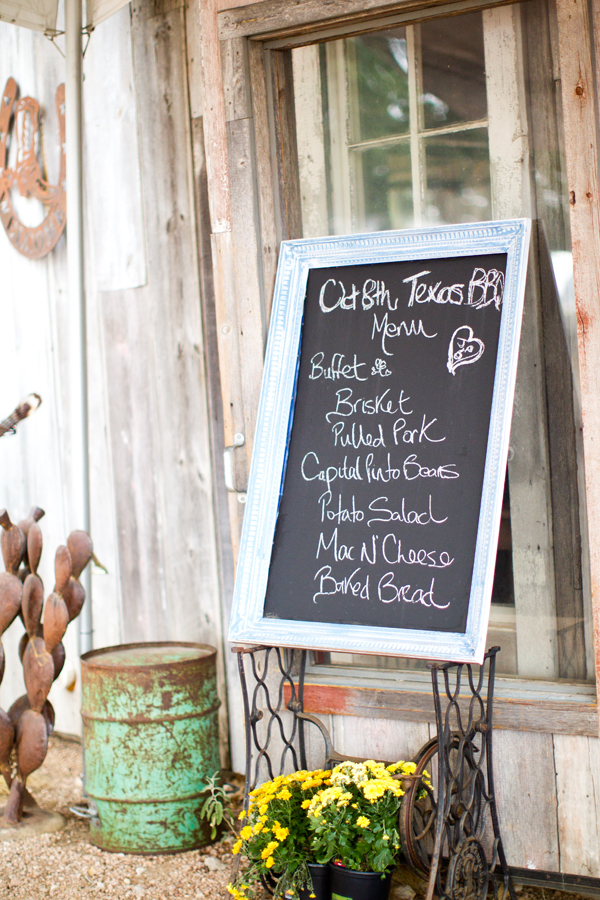 Oct 8th Texas BBQ
Menu
Buffet
Brisket
Pulled Pork
Capital Pinto Beans
Potato Salad
Mac N' Cheese
Baked Bread